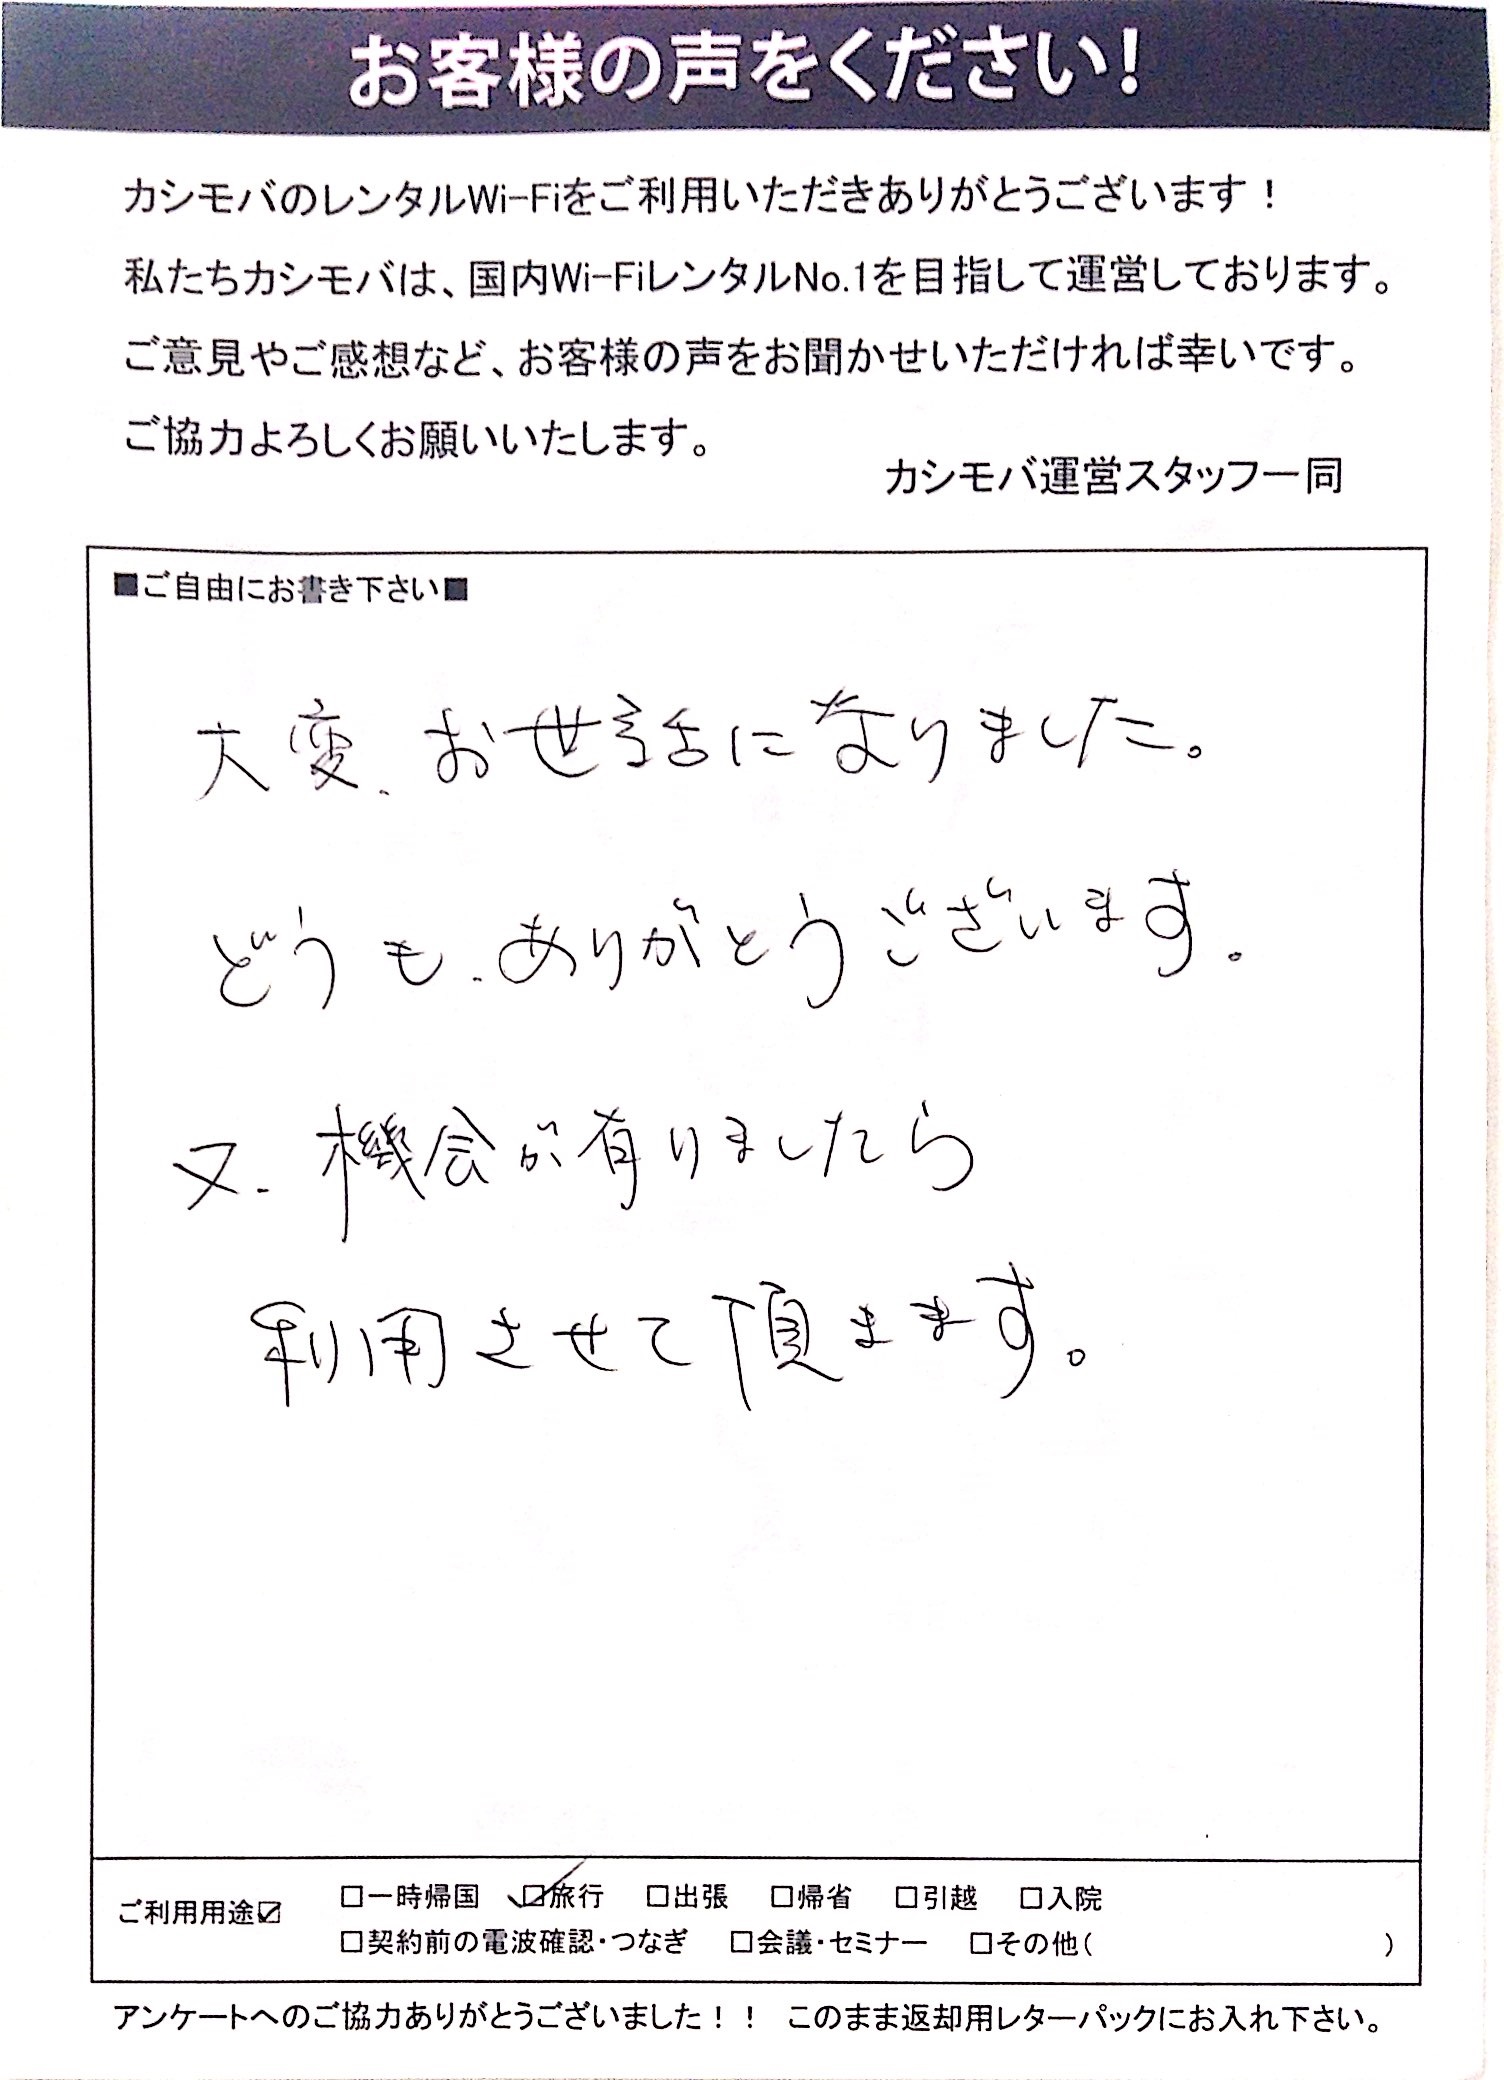 お客様の声をください!
カシモバのレンタルWi-Fiをご利用いただきありがとうございます！
私たちカシモバは、国内Wi-FiレンタルNo.1を目指して運営しております。
ご意見やご感想など、お客様の声をお聞かせいただければ幸いです。
ご協力よろしくお願いいたします。
カシモバ運営スタッフ一同
■ご自由にお書き下さい■
大変、お世話になりました。
どうも、ありがとうございます。
又、機会が有りましたら
利用させて頂まます。
ご利用用途☑ □一時帰国 ☑旅行 □出張 □帰省 □引越 □入院
□契約前の電波確認・つなぎ □会議・セミナー □その他( )
アンケートへのご協力ありがとうございました！！ このまま返却用レターパックにお入れ下さい。